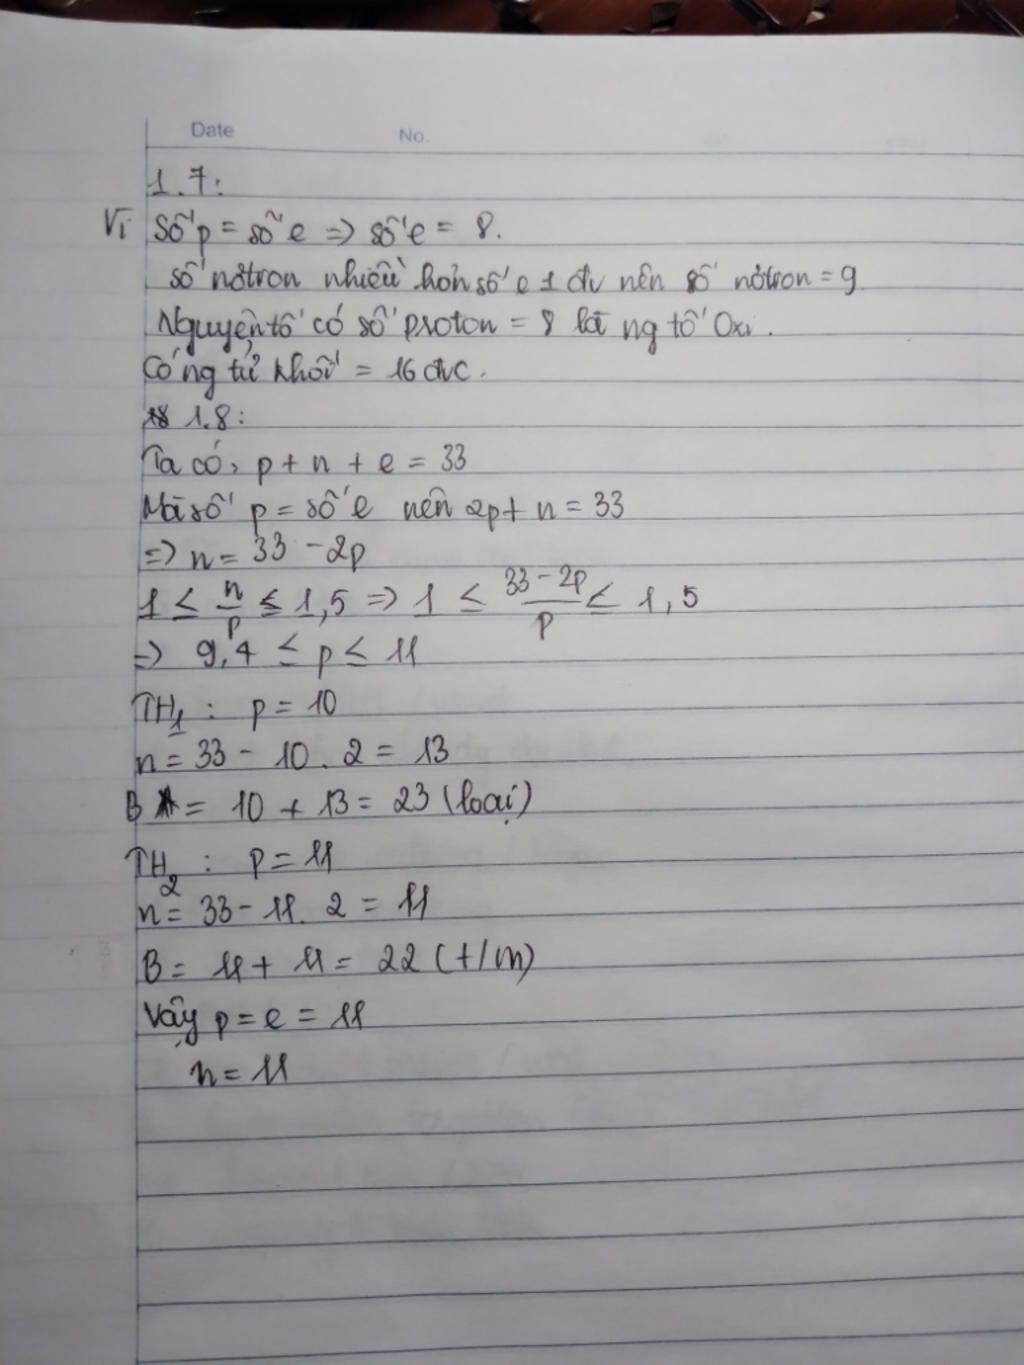 Date No.
1.7:
Vì số p = số e => số e = 8.
số nơtron nhiều hơn số e 1 đv nên số nơtron = 9
Nguyên tố có số proton = 8 là ng tố Oxi.
Có ng tử khối = 16 đvc.
1.8:
Ta có, p + n + e = 33
Mà số p = số e nên 2p + n = 33
=> n = 33 - 2p
1 ≤ n/p ≤ 1,5 => 1 ≤ (33 - 2p)/p ≤ 1,5
=> 9,4 ≤ p ≤ 11
TH1 : p = 10
n = 33 - 10. 2 = 13
B = 10 + 13 = 23 (loại)
TH2 : p = 11
n = 33 - 11. 2 = 11
B = 11 + 11 = 22 (t/m)
Vậy p = e = 11
n = 11